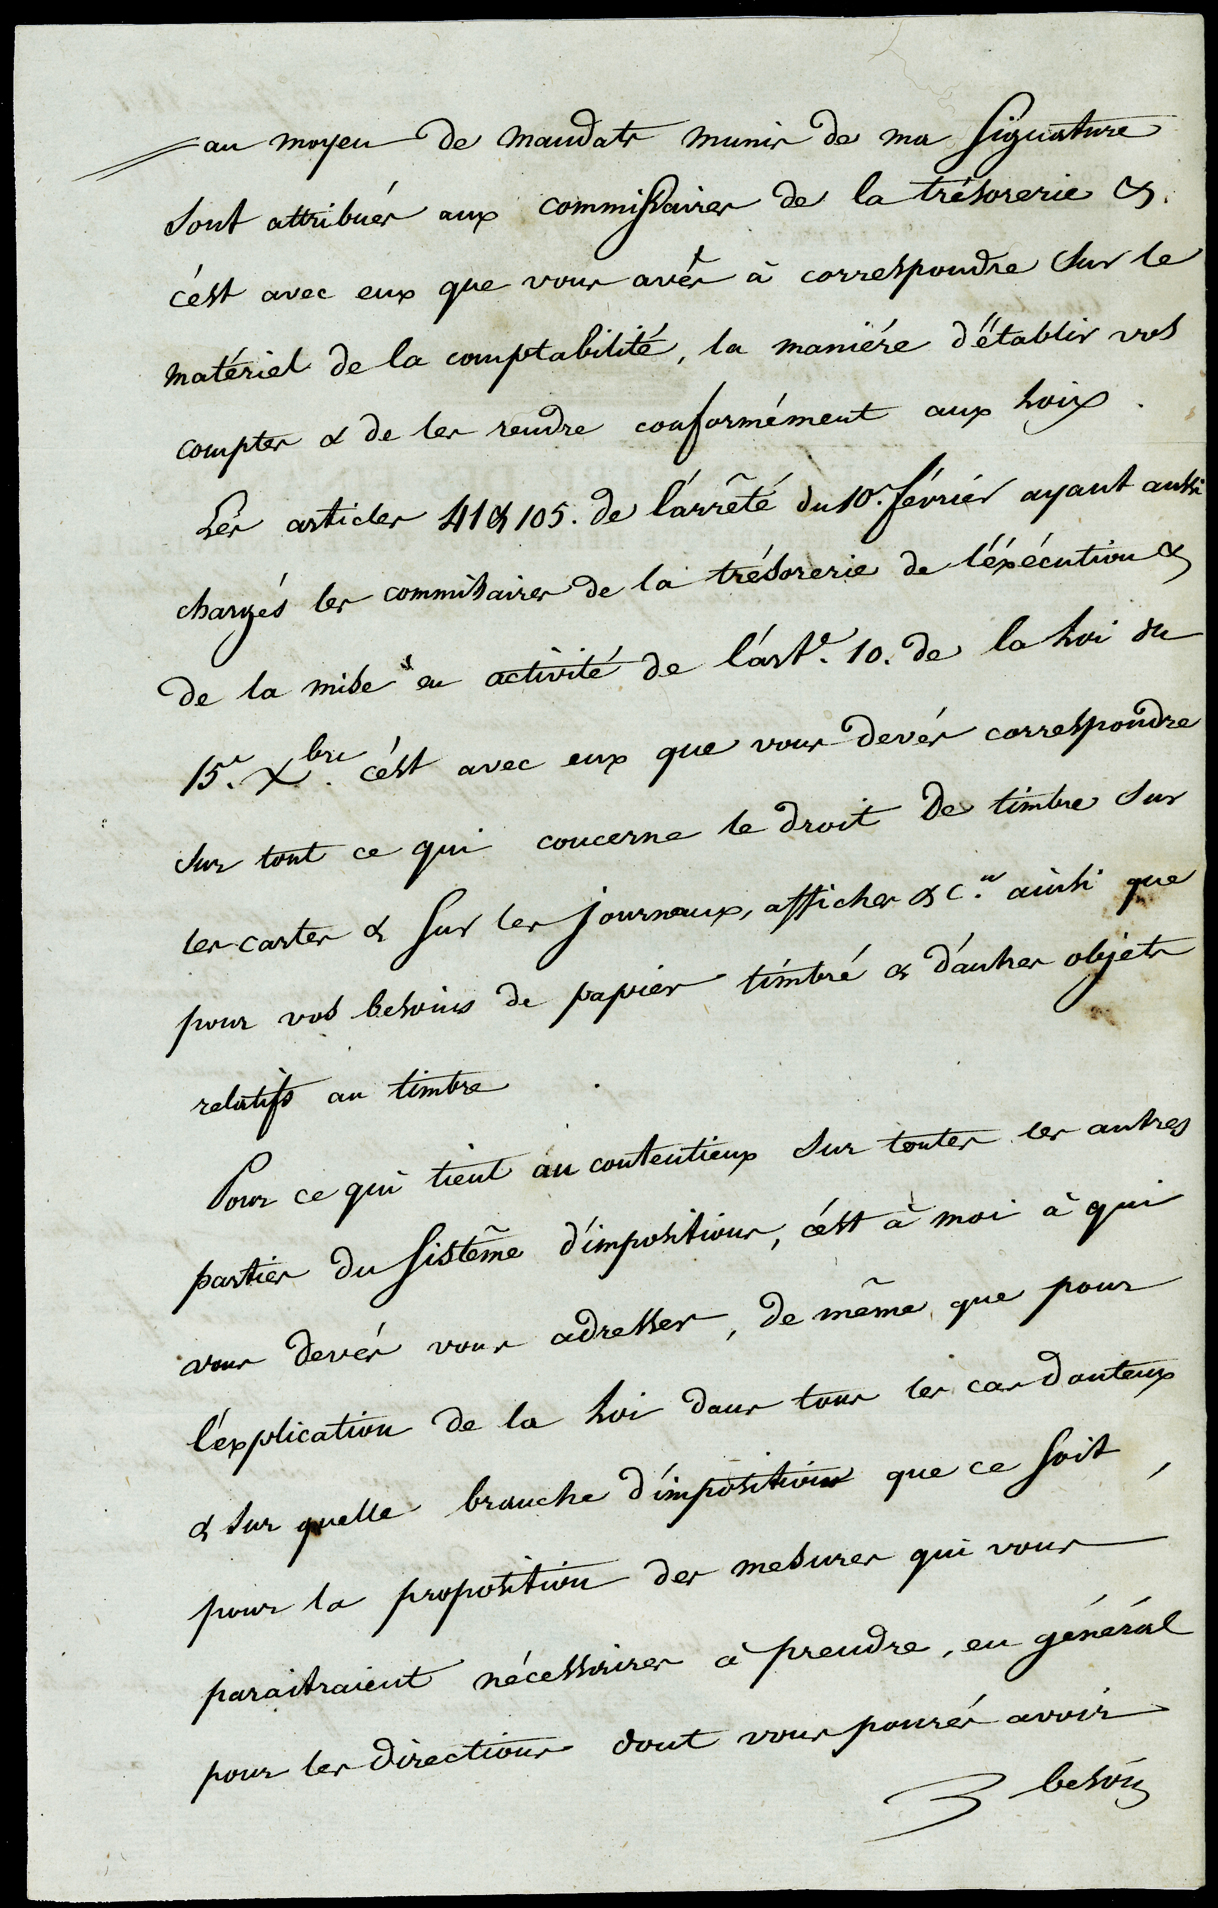 au moyen de mandats munis de ma signature
sont attribués aux commissaires de la trésorerie &.
c'ést avec eux que vous avés à correspondre sur le
matériel de la comptabilité, la maniére d'établir vos
comptes & de les rendre conformément aux loix.
Les articles 41 & 105. de l'arrêté du 10.e février ayant aussi
chargés les commisaires de la trésorerie de l'éxécution &
de la mise en activité de l'art.e 10. de la loi du
15.e Xbre. c'ést avec eux que vous devés correspondre
sur tout ce qui concerne le droit de timbre sur
les cartes & sur les journaux, affiches & c.a ainsi que
pour vos besoins de papier timbré & d'autres objets
relatifs au timbre.
Pour ce qui tient au contentieux sur toutes les autres
parties du sistême d'impositions, c'ést à moi à qui
vous devés vous adresser, de même que pour
l'éxplication de la loi dans tous les cas douteux
& sur quelle branche d'imposition que ce soit,
pour la proposition des mesures qui vous
paraitraient nécessaires à prendre, en général
pour les directions dont vous pourés avoir
besoin